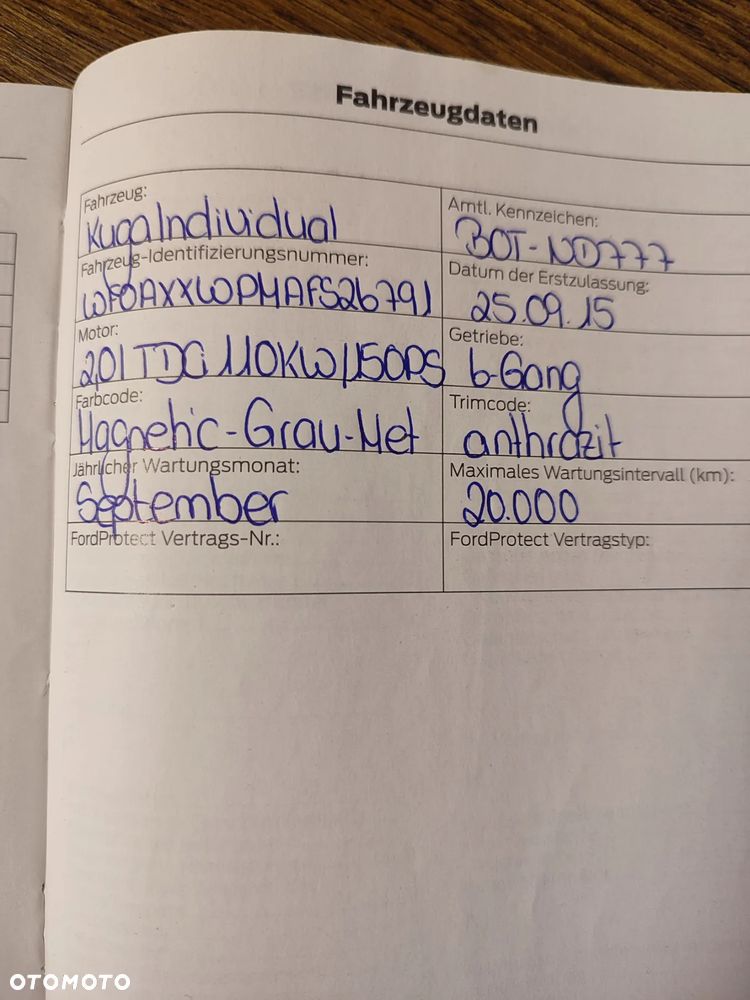 Fahrzeugdaten
Fahrzeug:
Kuga Individual
Amtl. Kennzeichen:
BOT-ND777
Fahrzeug-Identifizierungsnummer:
WF0AXXWPMAFS26791
Datum der Erstzulassung:
25.09.15
Motor:
2,0l TDCi 110KW/150PS
Getriebe:
6-Gang
Farbcode:
Magnetic-Grau-Met
Trimcode:
anthrazit
Jährlicher Wartungsmonat:
September
Maximales Wartungsintervall (km):
20.000
FordProtect Vertrags-Nr.:
FordProtect Vertragstyp:
OTOMOTO